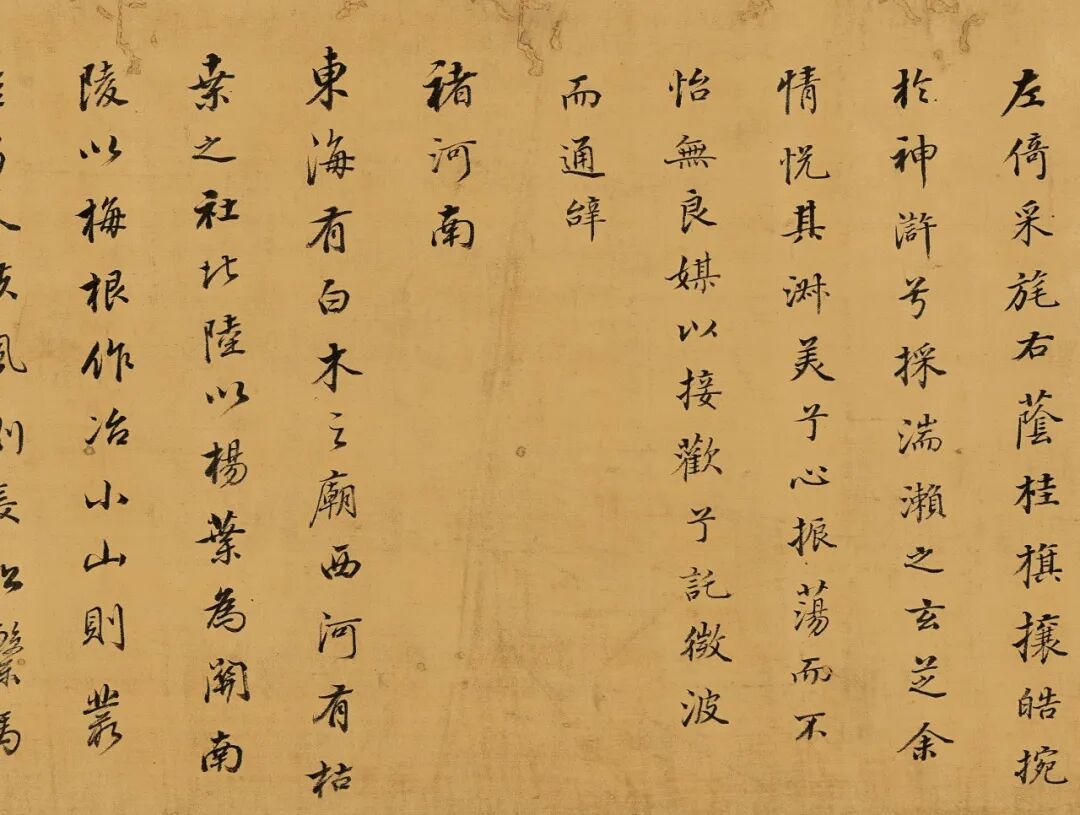 左倚采旄右蔭桂旗攘皓捥
於神滸兮採湍瀨之玄芝余
情悅其淋美兮心振蕩而不
怡無良媒以接歡兮託微波
而通辭
褚河南
東海有白木之廟西河有枯
桒之社北陸以楊葉為關南
陵以梅根作冶小山則叢